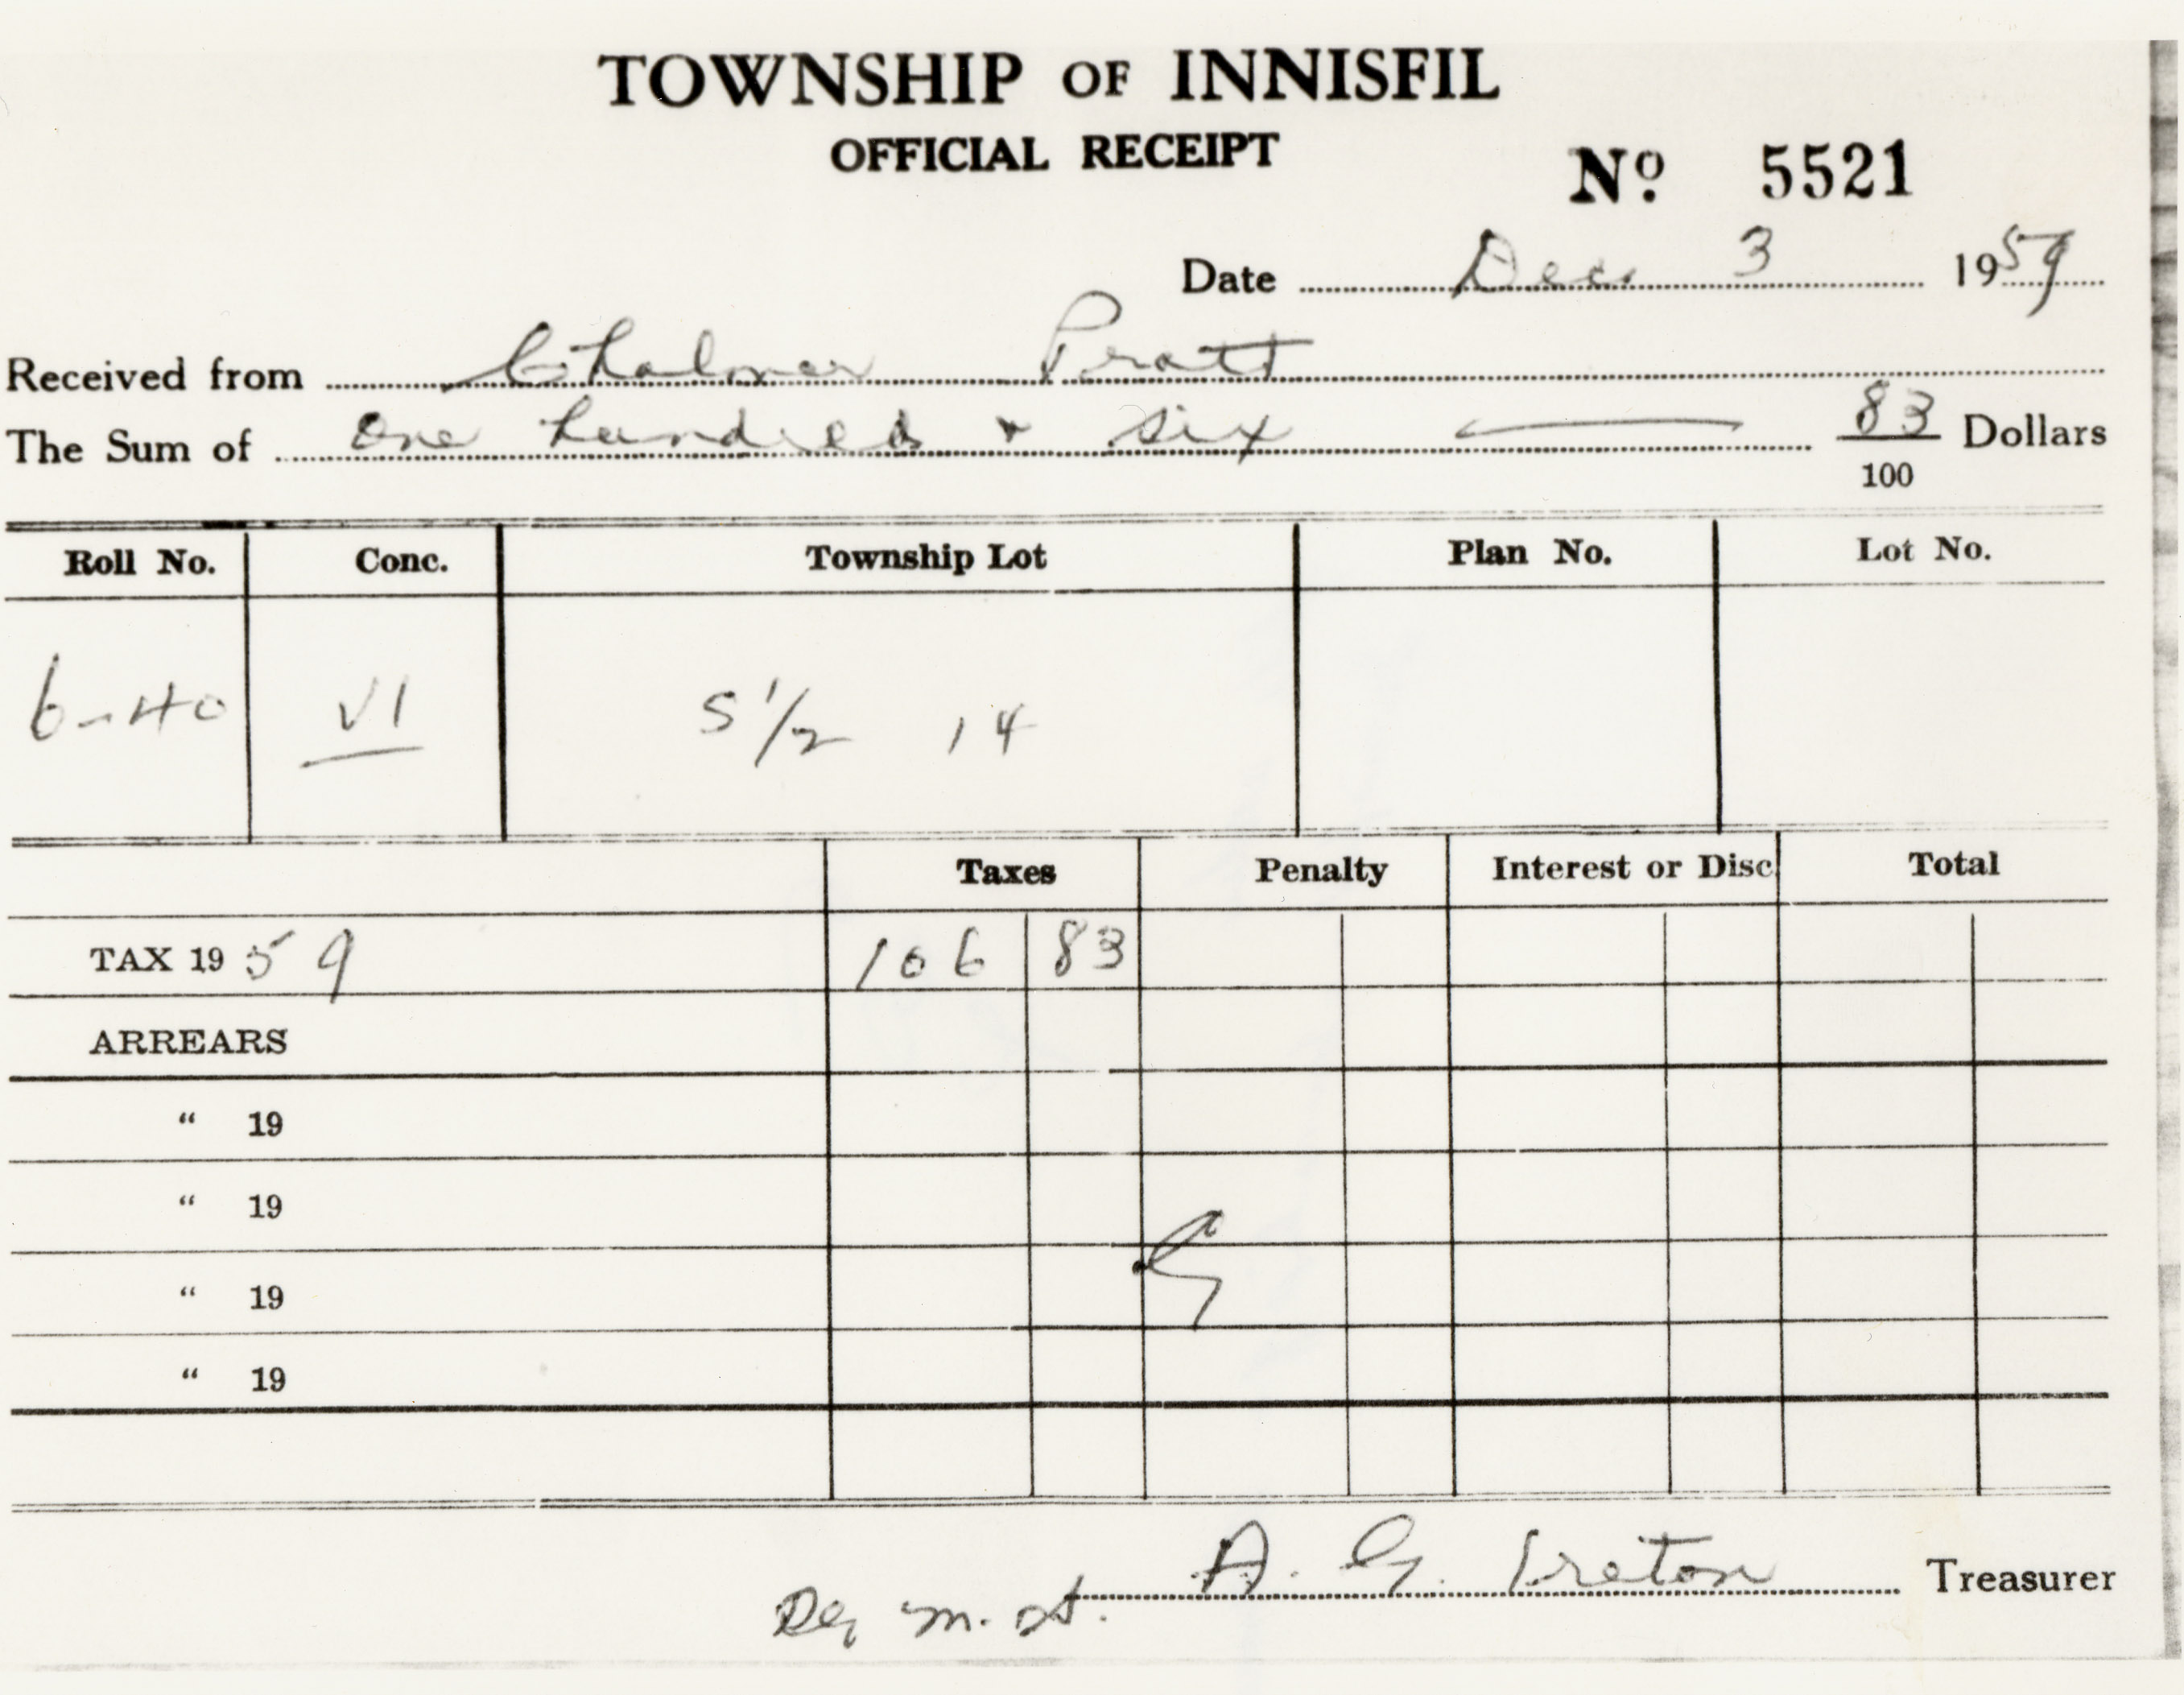 TOWNSHIP OF INNISFIL
OFFICIAL RECEIPT
No. 5521
Date Dec. 3 1959
Received from Chalmer Pratt
The Sum of One hundred + six 83/100 Dollars
Roll No. Conc. Township Lot Plan No. Lot No.
6-40 VI S 1/2 14
Taxes Penalty Interest or Disc. Total
TAX 1959 106 83
ARREARS
" 19
" 19
" 19
" 19
A. G. Ireton Treasurer
m.